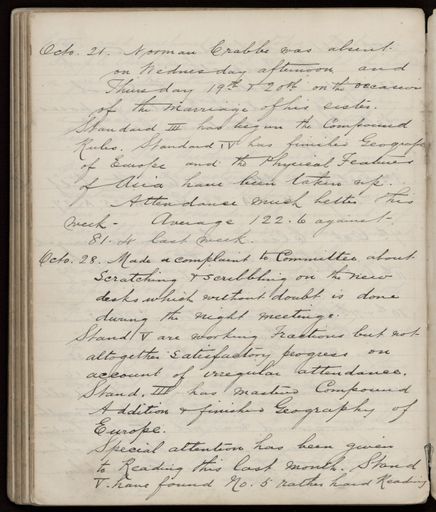 Octo. 21. Norman Crabbe was absent
on Wednesday afternoon and
Thursday 19th & 20th on the occasion
of the Marriage of his sister.
Standard III has begun the Compound
Rules. Standard IV has finished Geography
of Europe and the Physical Features
of Asia have been taken up.
Attendance much better this
week - Average 122.6 against
81.4 last week.
Octo. 28. Made a complaint to Committee about
Scratching & scribbling on the new
desks which without doubt is done
during the night meetings.
Stand V are working Fractions but not
altogether Satisfactory progress on
account of irregular attendance.
Stand. III has masters Compound
Addition & finished Geography of
Europe.
Special attention has been given
to Reading this last month. Stand
V have found No. 5 rather hard Reading